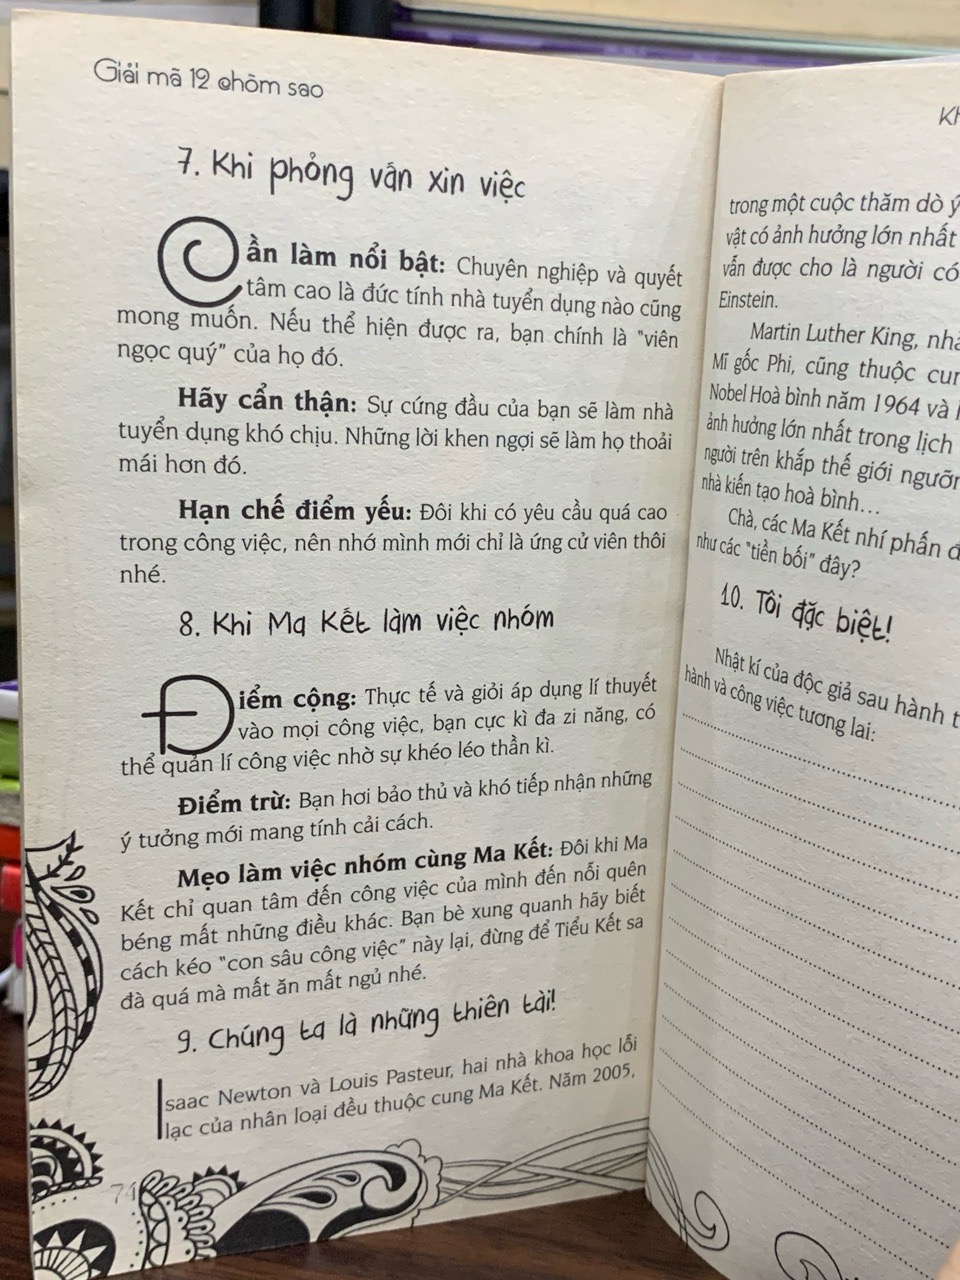 Giải mã 12 chòm sao
7. Khi phỏng vấn xin việc
Cần làm nổi bật: Chuyên nghiệp và quyết
tâm cao là đức tính nhà tuyển dụng nào cũng
mong muốn. Nếu thể hiện được ra, bạn chính là "viên
ngọc quý" của họ đó.
Hãy cẩn thận: Sự cứng đầu của bạn sẽ làm nhà
tuyển dụng khó chịu. Những lời khen ngợi sẽ làm họ thoải
mái hơn đó.
Hạn chế điểm yếu: Đôi khi có yêu cầu quá cao
trong công việc, nên nhớ mình mới chỉ là ứng cử viên thôi
nhé.
8. Khi Ma Kết làm việc nhóm
Điểm cộng: Thực tế và giỏi áp dụng lí thuyết
vào mọi công việc, bạn cực kì đa zi năng, có
thể quản lí công việc nhờ sự khéo léo thần kì.
Điểm trừ: Bạn hơi bảo thủ và khó tiếp nhận những
ý tưởng mới mang tính cải cách.
Mẹo làm việc nhóm cùng Ma Kết: Đôi khi Ma
Kết chỉ quan tâm đến công việc của mình đến nỗi quên
béng mất những điều khác. Bạn bè xung quanh hãy biết
cách kéo "con sâu công việc" này lại, đừng để Tiểu Kết sa
đà quá mà mất ăn mất ngủ nhé.
9. Chúng ta là những thiên tài!
Isaac Newton và Louis Pasteur, hai nhà khoa học lỗi
lạc của nhân loại đều thuộc cung Ma Kết. Năm 2005,
74
trong một cuộc thăm dò ý
vật có ảnh hưởng lớn nhất
vẫn được cho là người có
Einstein.
Martin Luther King, nhà
Mĩ gốc Phi, cũng thuộc cun
Nobel Hoà bình năm 1964 và
ảnh hưởng lớn nhất trong lịch
người trên khắp thế giới ngưỡn
nhà kiến tạo hoà bình...
Chà, các Ma Kết nhí phấn đ
như các "tiền bối" đây?
10. Tôi đặc biệt!
Nhật kí của độc giả sau hành t
hành và công việc tương lai: